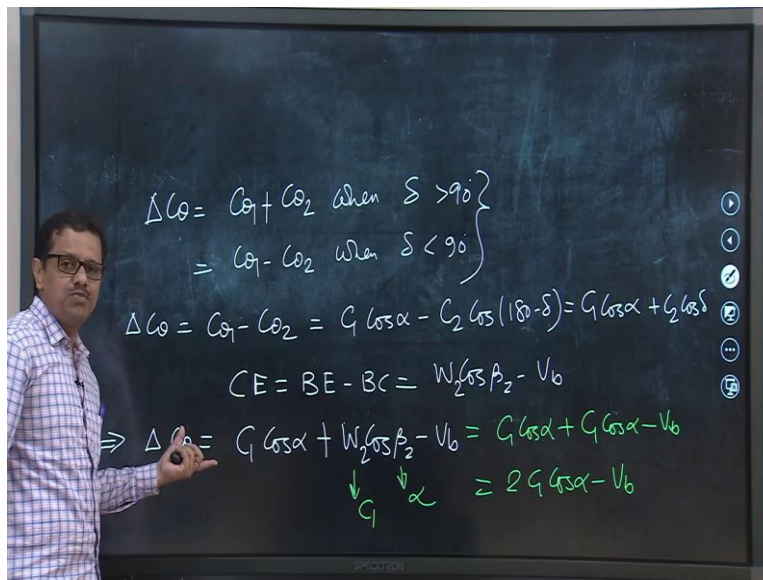 ΔCθ = Cθ1 + Cθ2 when δ > 90° }
= Cθ1 - Cθ2 when δ < 90°
ΔCθ = Cθ1 - Cθ2 = C1 Cosα - C2 Cos(180-δ) = C1 Cosα + C2 Cosδ
CE = BE - BC = W2 Cosβ2 - Vb
⇒ ΔCθ = C1 Cosα + W2 Cosβ2 - Vb = C1 Cosα + C1 Cosα - Vb
↓ C1 ↓ α = 2 C1 Cosα - Vb